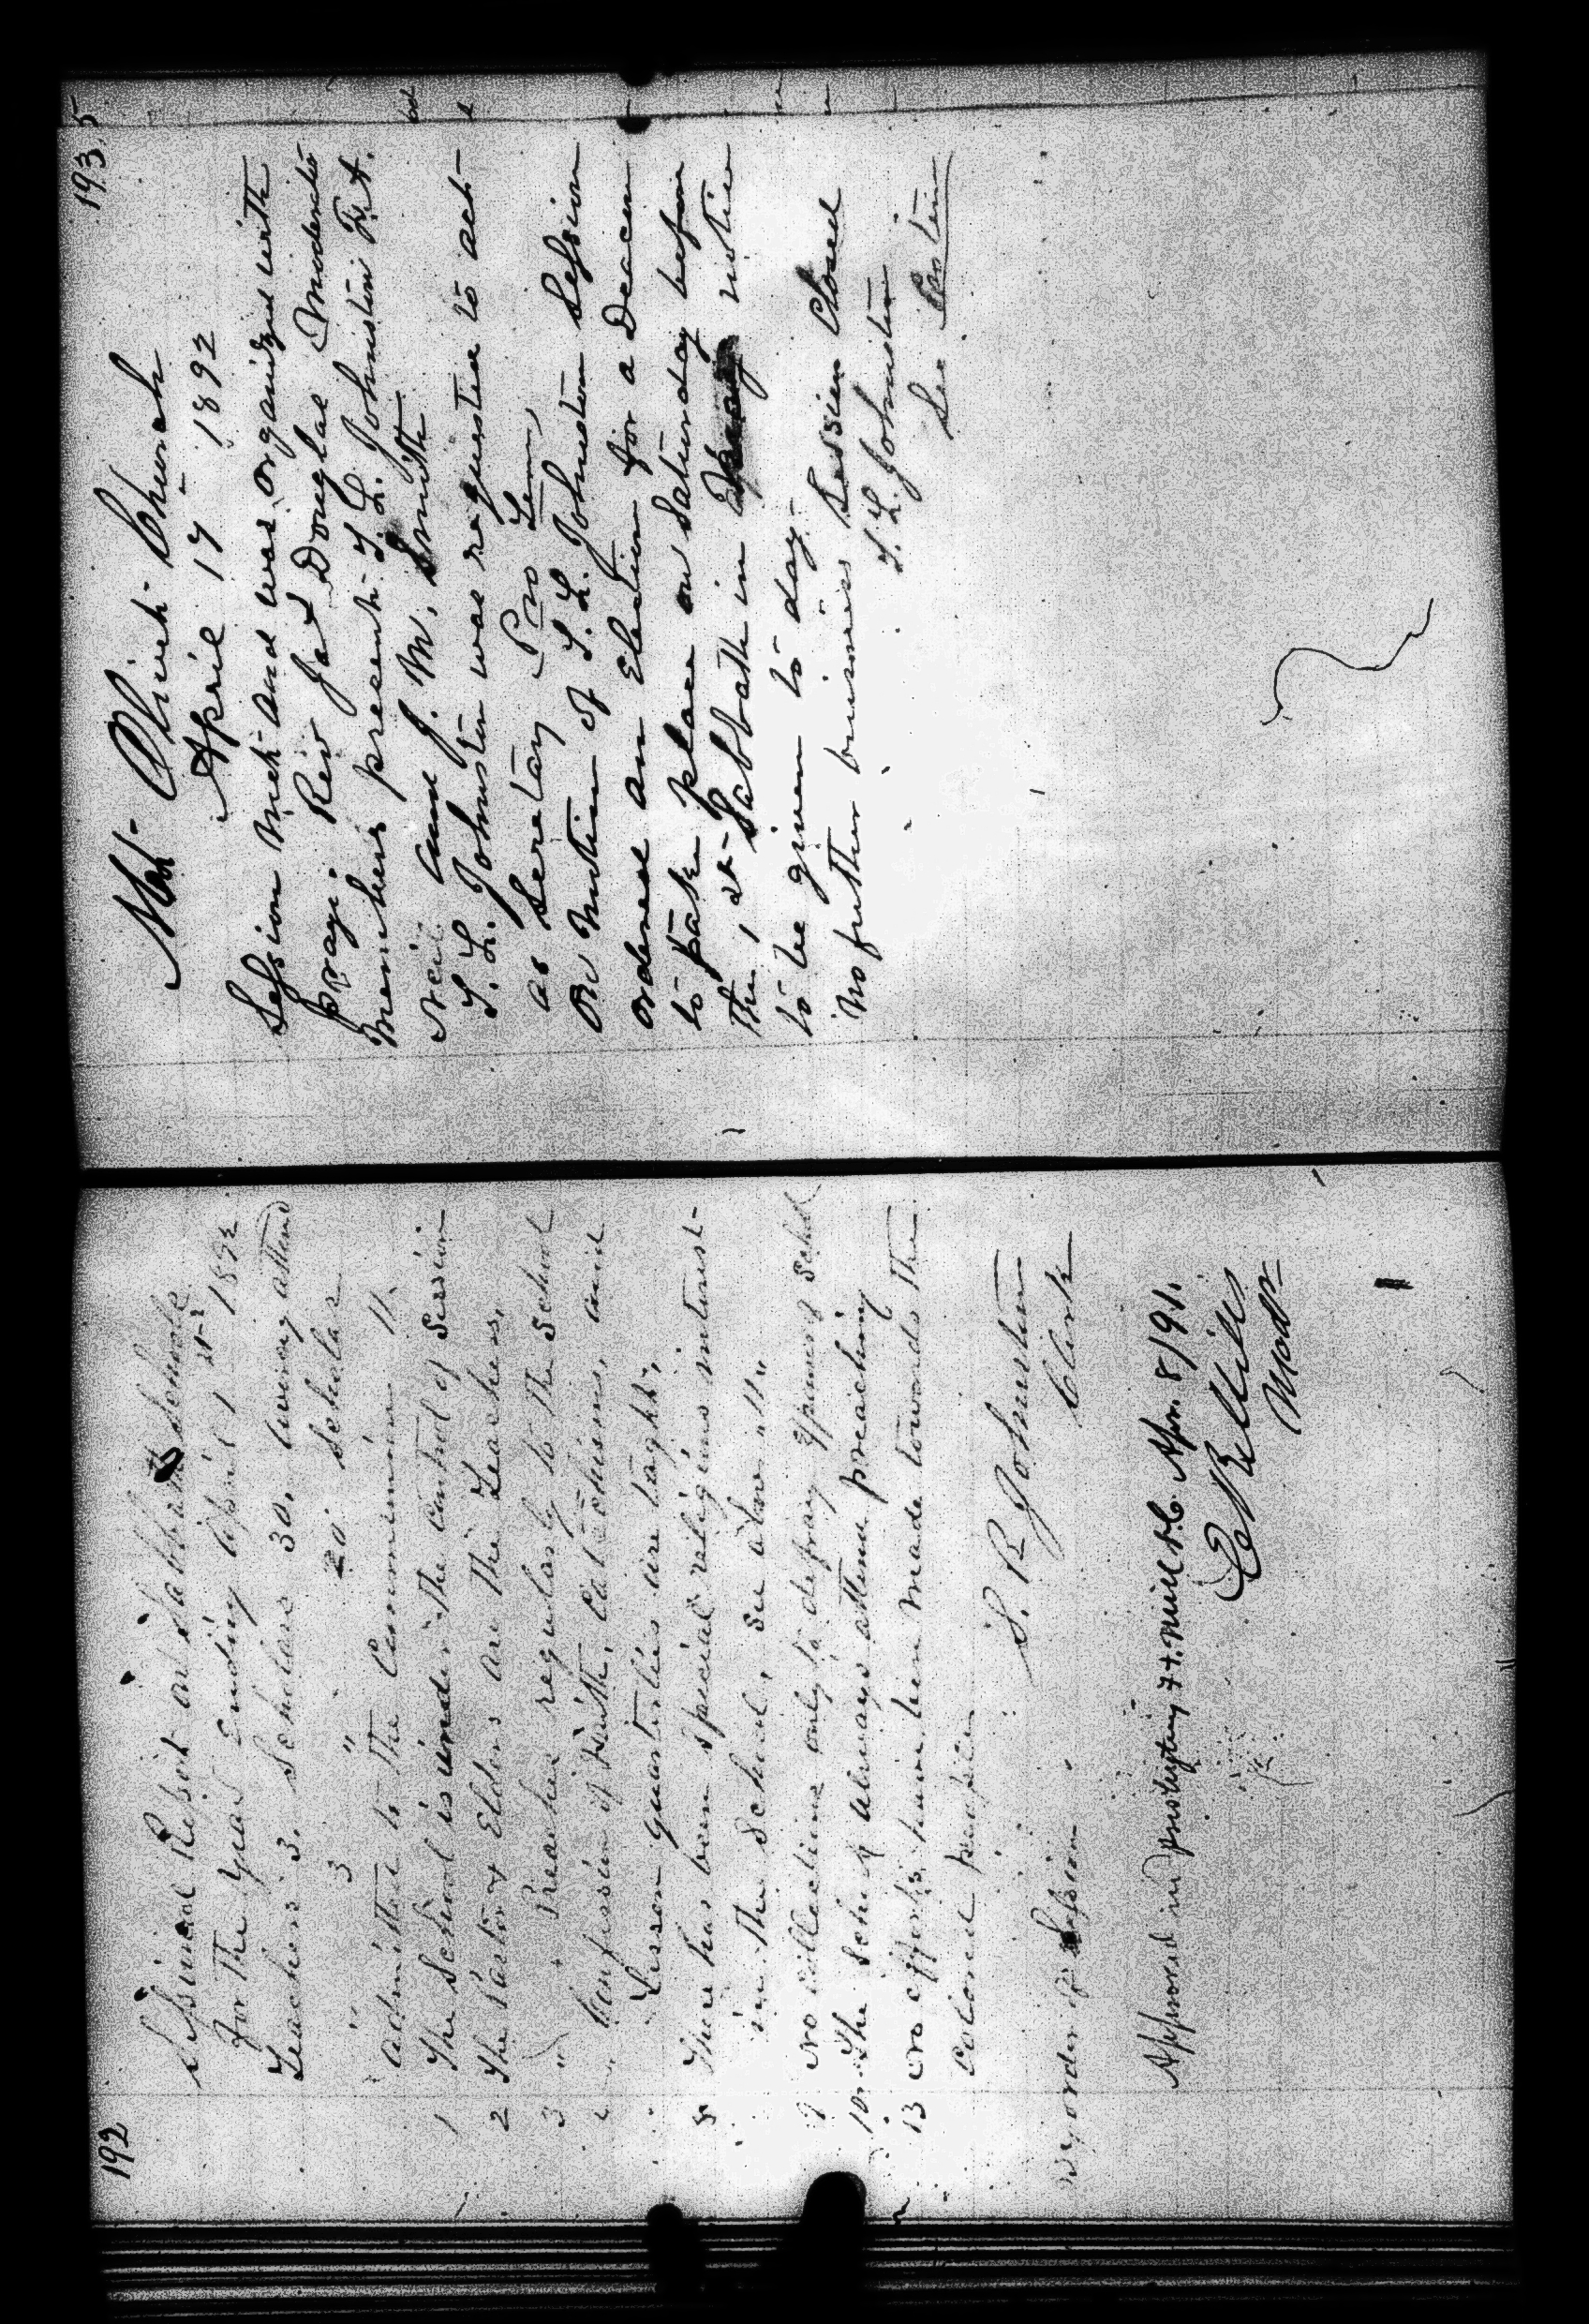 192
Sessional Report on Sabbath Schools
for The year Ending April 1st 1892
Teachers 3. Scholars 30. Average attend
" 3 " 20 Scholar
admitted to The Communion 11.
1 The School is under The control of Session
2 The Pastor & Elders are The Teachers.
3 " Preacher regularly to The School
Confession of Faith, Catechisms, and
Lesson quarterlies are taght,
8 There has been special religious interest-
in The School, see above "11"
9 No collections only to defray Expenses of Schol
10 The School always attend preaching
13 No efforts have been made towards The
Colored people
S. R. Johnston
Clerk
By order of Session
Approved in presbytery Ft. Mill S.C. Apr. 8/91.
Modr
193
Mt- Olivet- Church
April 17 1892
Session Met- and was organized with
pray. Rev Jas Douglas Moderator
Members present- S. L. Johnston
Neil and J. M. Smith
S. L. Johnston was requested to act-
as Secretary Pro Tem,
On Motion of S. L. Johnston Session
ordered an Election for a Deacon
to take place on Saturday before
The, 2- Sabbath in notice
to be given to day-
No further business Session Closed
S. L. Johnston